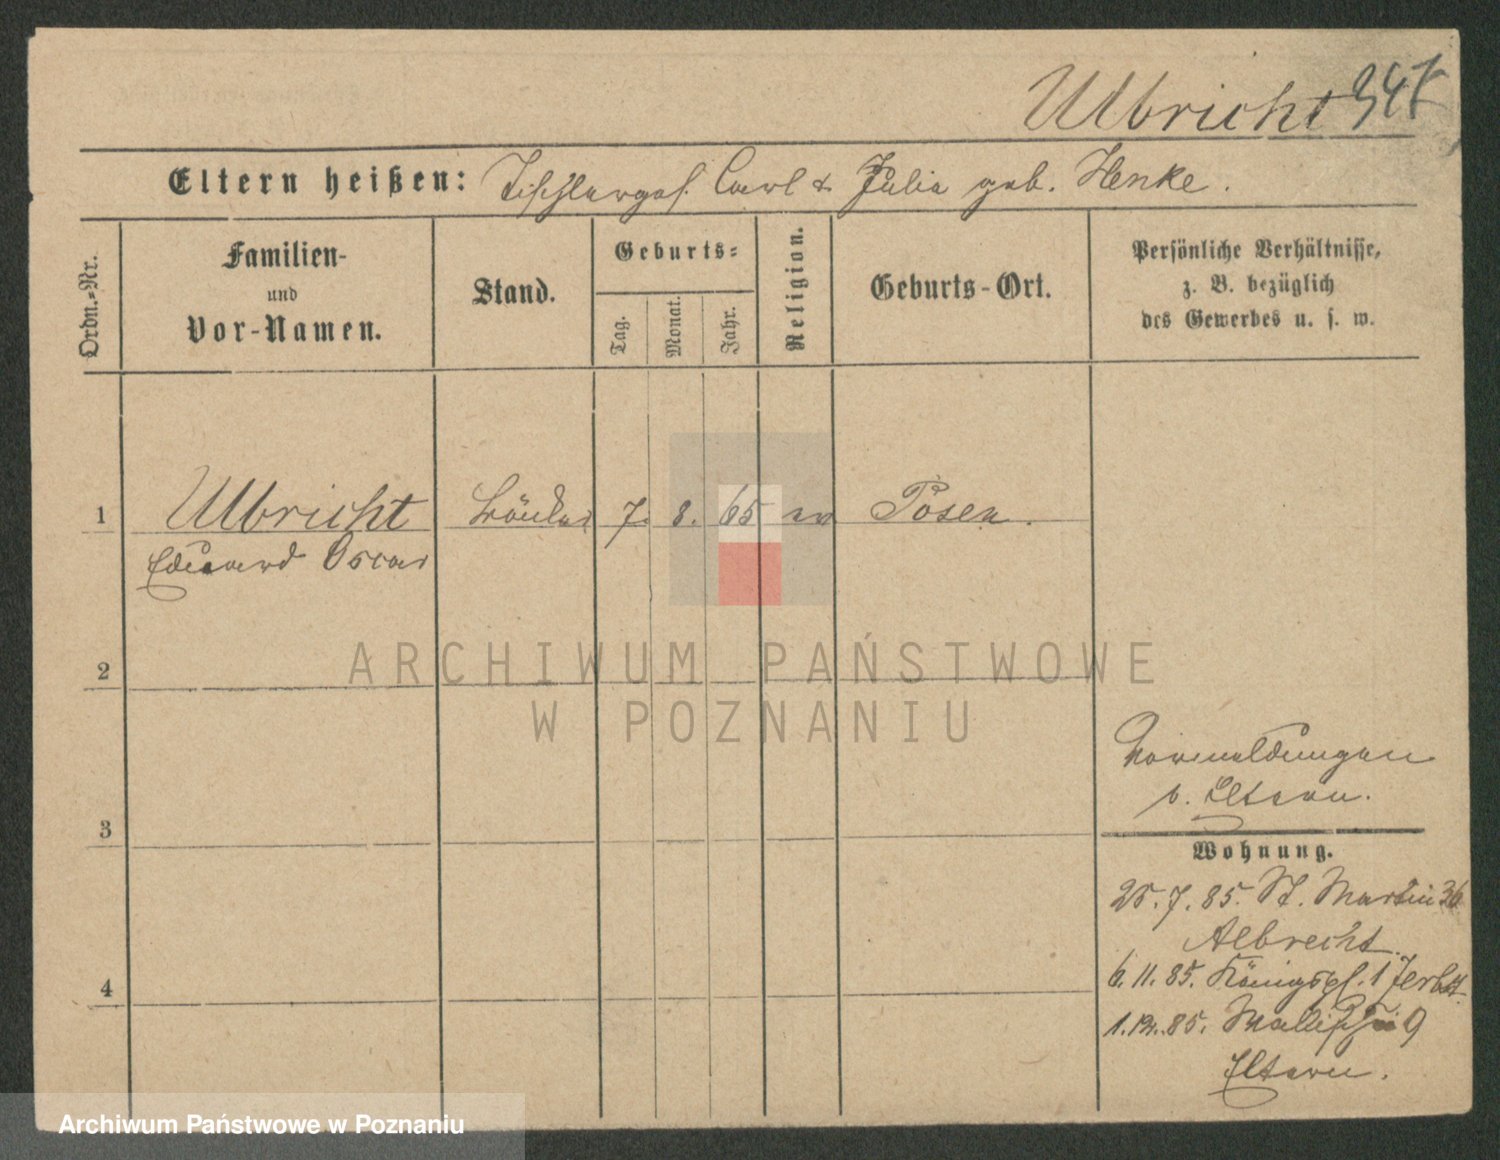 Ulbricht 347
Eltern heißen: Tischlerges. Carl & Julia geb. Henke.
Ordn.=Nr.
Familien-
und
Vor-Namen.
Stand.
Geburts=
Tag.
Monat.
Jahr.
Religion.
Geburts-Ort.
Persönliche Verhältnisse,
z. B. bezüglich
des Gewerbes u. s. w.
1 Ulbricht 7. 8. 65 Posen.
Eduard Oscar
2
3
4
Vormeldungen
b. Eltern.
Wohnung.
25. 7. 85. St. Martin 36
Albrecht.
6. 11. 85. Königspl. 1
1. 12. 85. Wallischei 9
Eltern.
ARCHIWUM PAŃSTWOWE
W POZNANIU
Archiwum Państwowe w Poznaniu